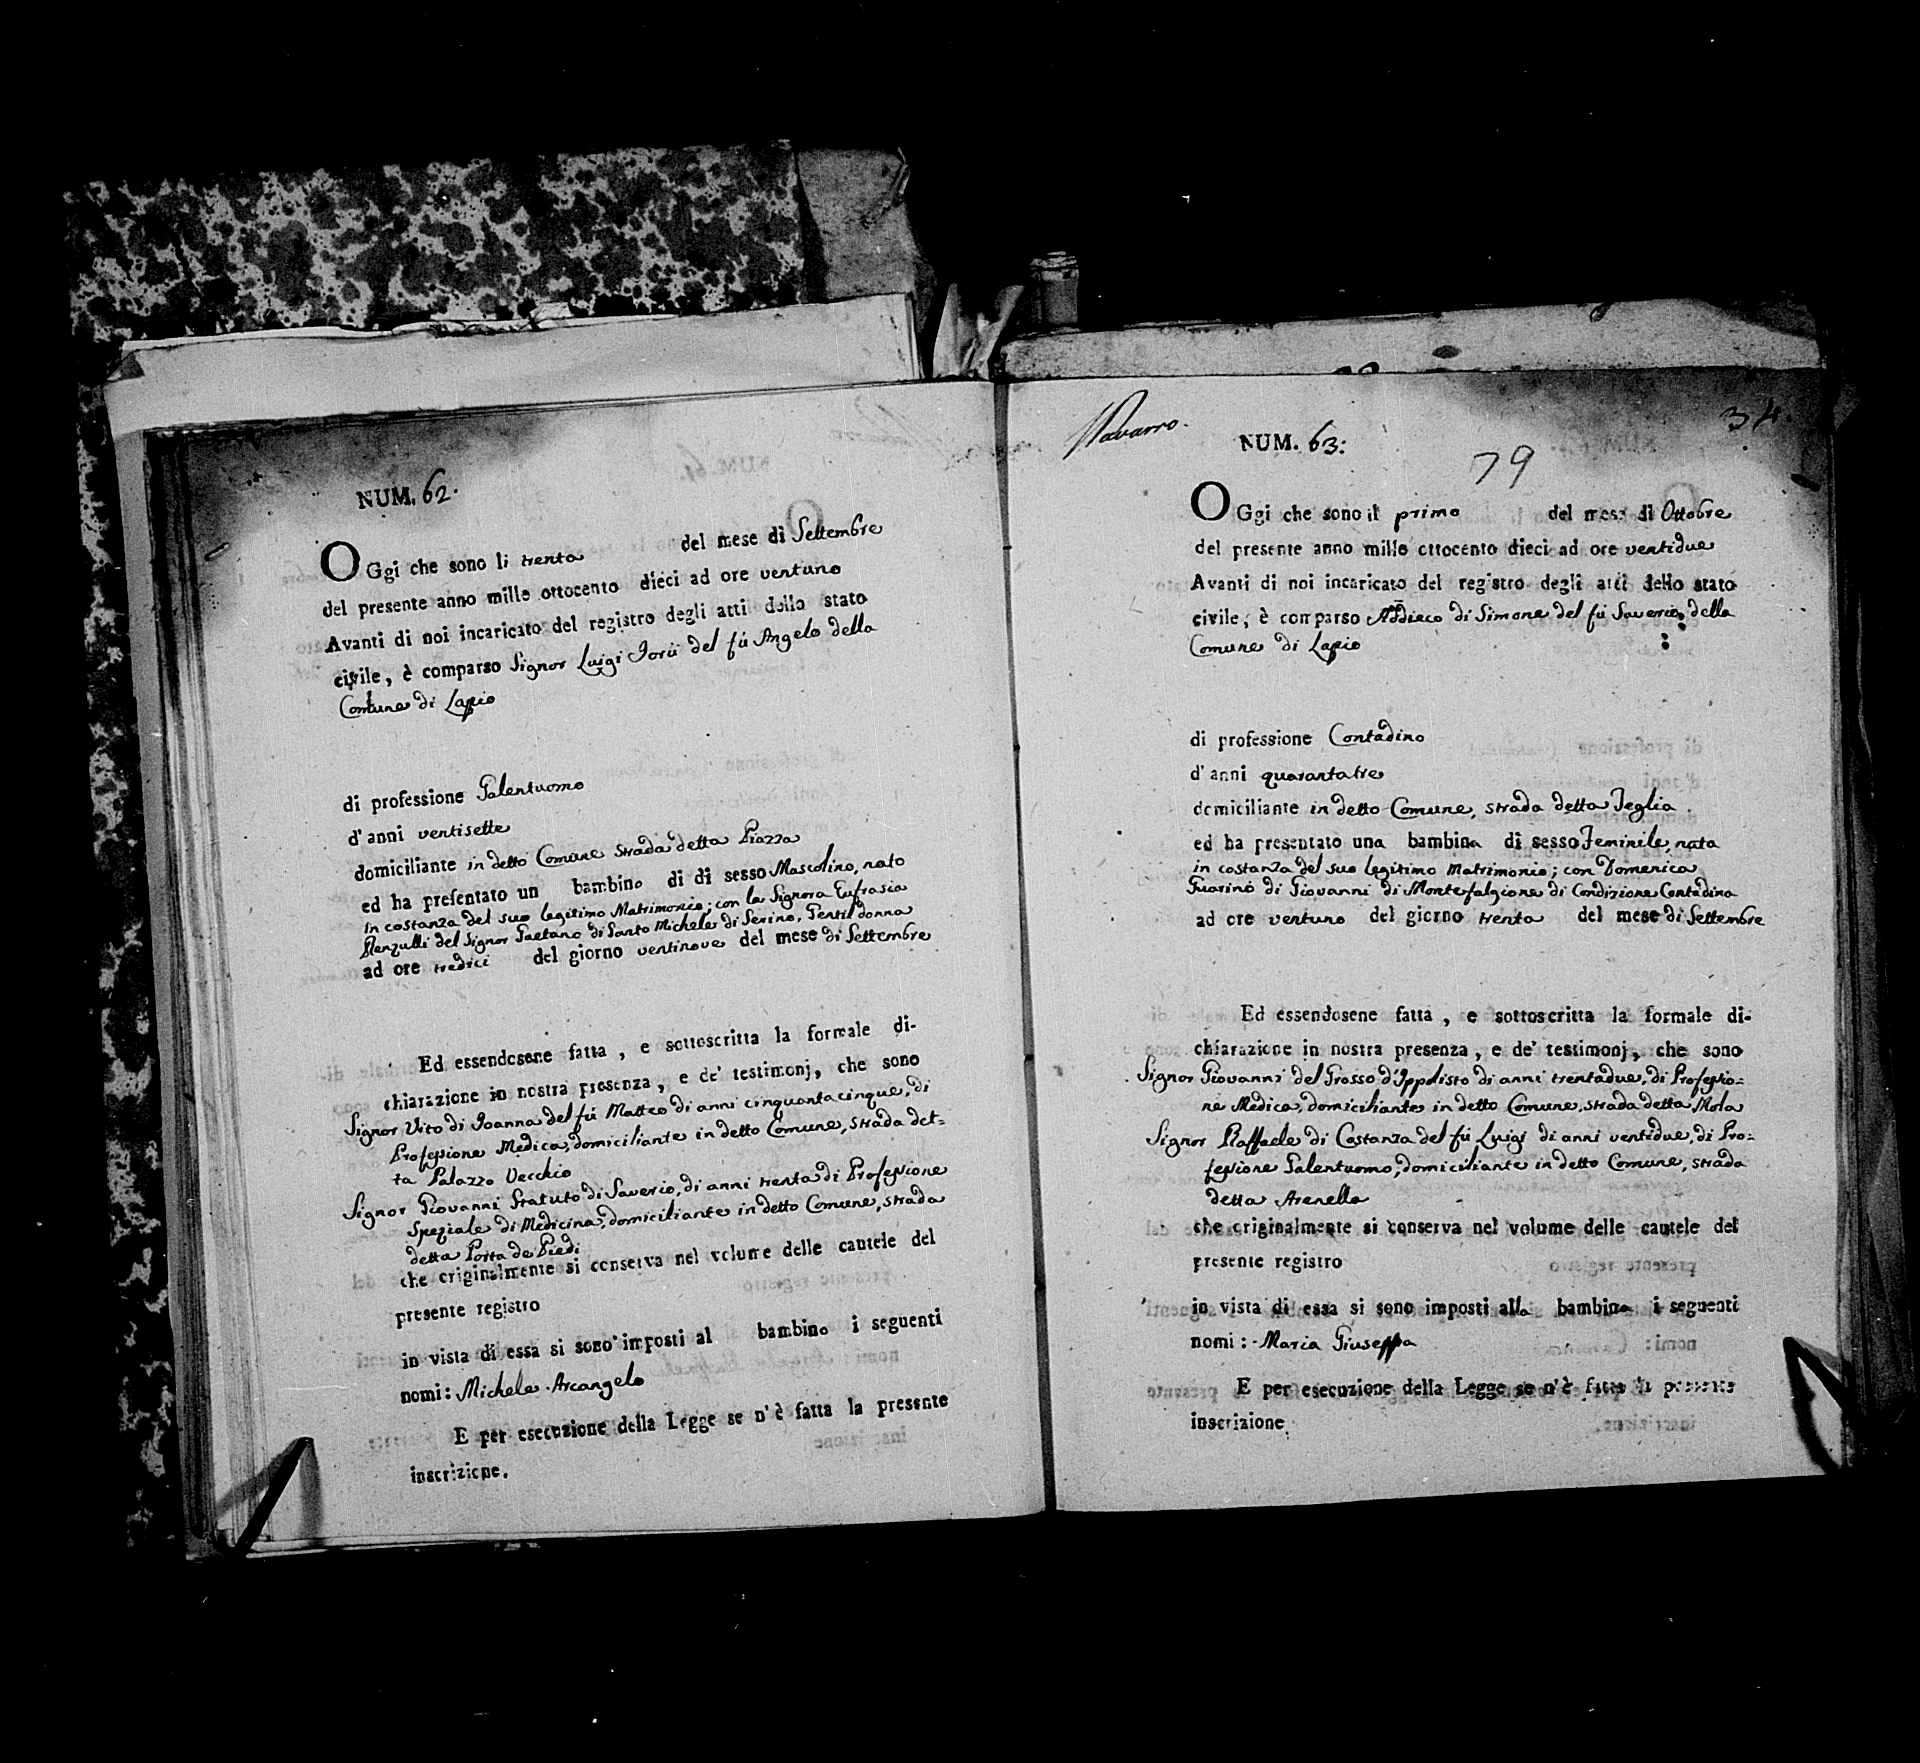 NUM. 62.
OGgi che sono li trenta del mese di Settembre
del presente anno mille ottocento dieci ad ore ventuno
Avanti di noi incaricato del registro degli atti dello stato
civile, è comparso Signor Luigi Iorii del fú Angelo della
Comune di Lapio
di professione Galentuomo
d'anni ventisette
domiciliante in detto Comune strada detta Piazza
ed ha presentato un bambino di di sesso Mascolino, nato
in costanza del suo legitimo Matrimonio; con la Signora Eufrasia
Renzulli del Signor Gaetano di Santo Michele di Serino, Gentildonna
ad ore tredici del giorno ventinove del mese di Settembre
Ed essendosene fatta, e sottoscritta la formale di-
chiarazione in nostra presenza, e de' testimonj, che sono
Signor Vito di Joanna del fú Matteo di anni cinquantacinque, di
Professione Medica, domiciliante in detto Comune, strada det-
ta Palazzo Vecchio
Signor Giovanni Statuto di Saverio, di anni trenta di Professione
Speziale di Medicina, domiciliante in detto Comune, strada
detta Porta de Piedi
che originalmente si conserva nel volume delle cautele del
presente registro
in vista di essa si sono imposti al bambino i seguenti
nomi: Michele Arcangelo
E per esecuzione della Legge se n'è fatta la presente
inscrizione.
Navarro.
NUM. 63:
34.
79
OGgi che sono il primo del mese di Ottobre
del presente anno mille ottocento dieci ad ore ventidue
Avanti di noi incaricato del registro degli atti dello stato
civile, è comparso Addieco di Simone del fú Saverio, della
Comune di Lapio
di professione Contadino
d'anni quarantatre
domiciliante in detto Comune, strada detta Teglia
ed ha presentato una bambina di sesso Feminile, nata
in costanza del suo legitimo Matrimonio; con Domenica
Guarino di Giovanni di Montefalgione di Condizione Contadina
ad ore ventuno del giorno trenta del mese di Settembre
Ed essendosene fatta, e sottoscritta la formale di-
chiarazione in nostra presenza, e de' testimonj, che sono
Signor Giovanni del Grosso d'Ippolisto di anni trentadue, di Professio=
ne Medica, domiciliante in detto Comune, strada detta Mola
Signor Raffaele di Costanza del fú Luigi di anni ventidue, di Pro=
fessione Galentuomo, domiciliante in detto Comune, strada
detta Arenella
che originalmente si conserva nel volume delle cautele del
presente registro
in vista di essa si sono imposti alla bambina i seguenti
nomi: Maria Giuseppa
E per esecuzione della Legge se n'è fatta la presente
inscrizione.